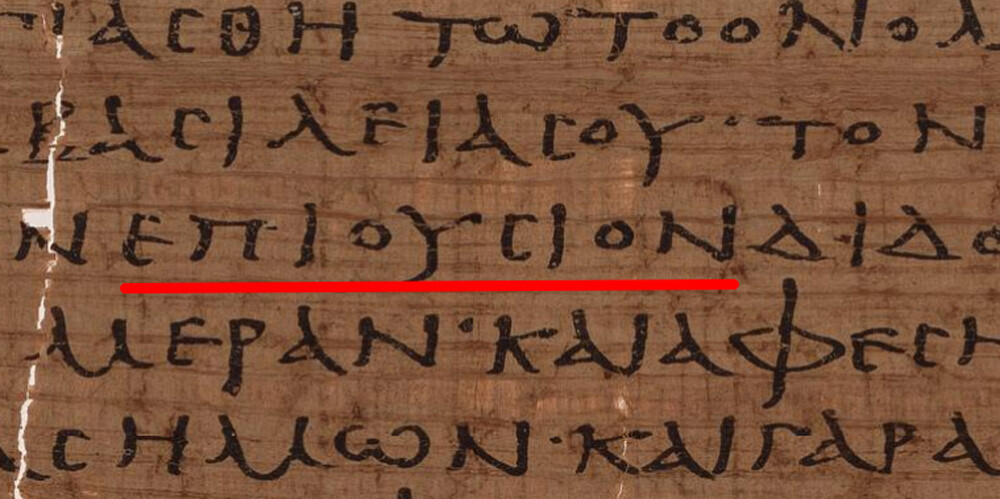 ΑϹΘΗΤΩΤΟΟΝΟΛ
ΒΑϹΙΛΕΙΑϹΟΥ·ΤΟΝ
ΝΕΠΙΟΥϹΙΟΝΔΙΔΟ
ΜΕΡΑΝ·ΚΑΙΑΦΕϹΗ
ϹΗΜΩΝ·ΚΑΙΓΑΡΑ